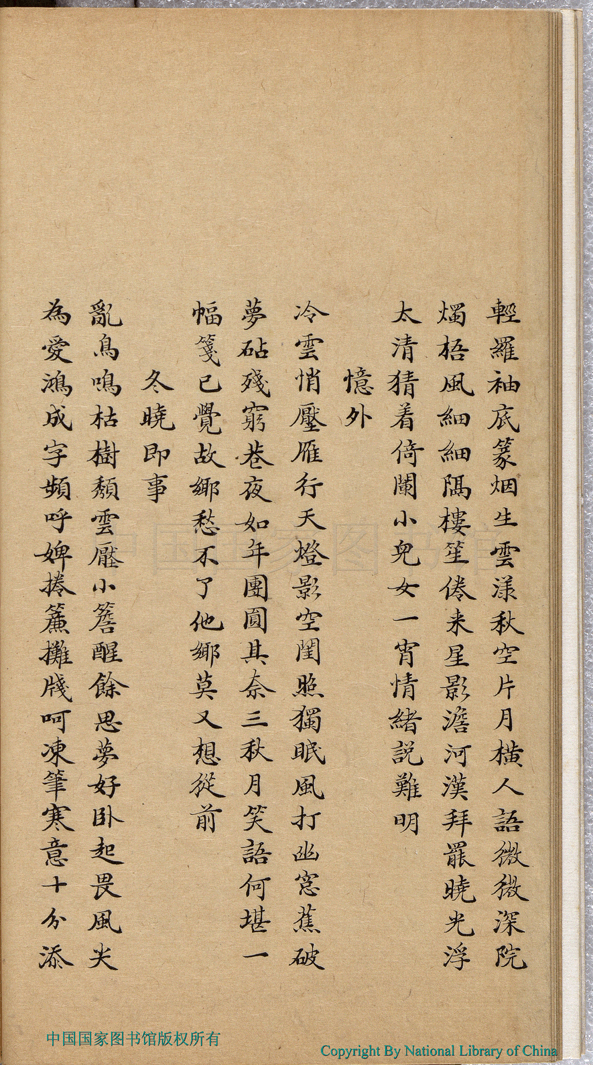 輕羅袖底篆烟生雲漾秋空片月橫人語微微深院
燭梧風細細隔樓笙倦来星影澹河漢拜罷曉光浮
太清猜着倚闌小兒女一宵情緒説難明
憶外
冷雲悄壓雁行天燈影空閨照獨眠風打幽窓蕉破
夢砧殘窮巷夜如年團圓其奈三秋月笑語何堪一
幅箋已覺故鄉愁不了他鄉莫又想從前
冬曉即事
亂鳥鳴枯樹頹雲壓小簷醒餘思夢好卧起畏風尖
為愛鴻成字頻呼婢捲簾攤牋呵凍筆寒意十分添
中国国家图书馆
中国国家图书馆版权所有
Copyright By National Library of China